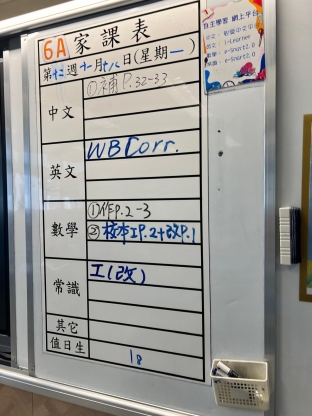 6A 家課表
第十二週十一月十八日(星期一)
中文
①補P.32-33
英文
WB Corr.
數學
①作P.2-3
②校本工P.2+改P.1
常識
工(改)
其它
值日生
18
自主學習 網上平台
i-Learner
e-Smart2.0
e-Smart2.0